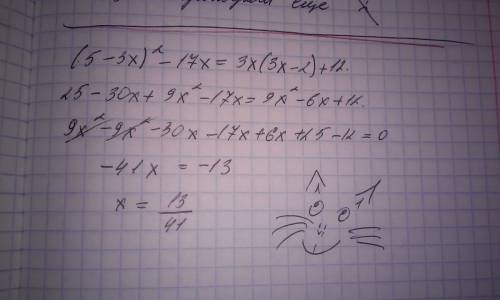 еще х
(5-3x)²-17x=3x(3x-2)+12.
25-30x+9x²-17x=9x²-6x+12.
9x²-9x²-30x-17x+6x+25-12=0
-41x=-13
x=13/41